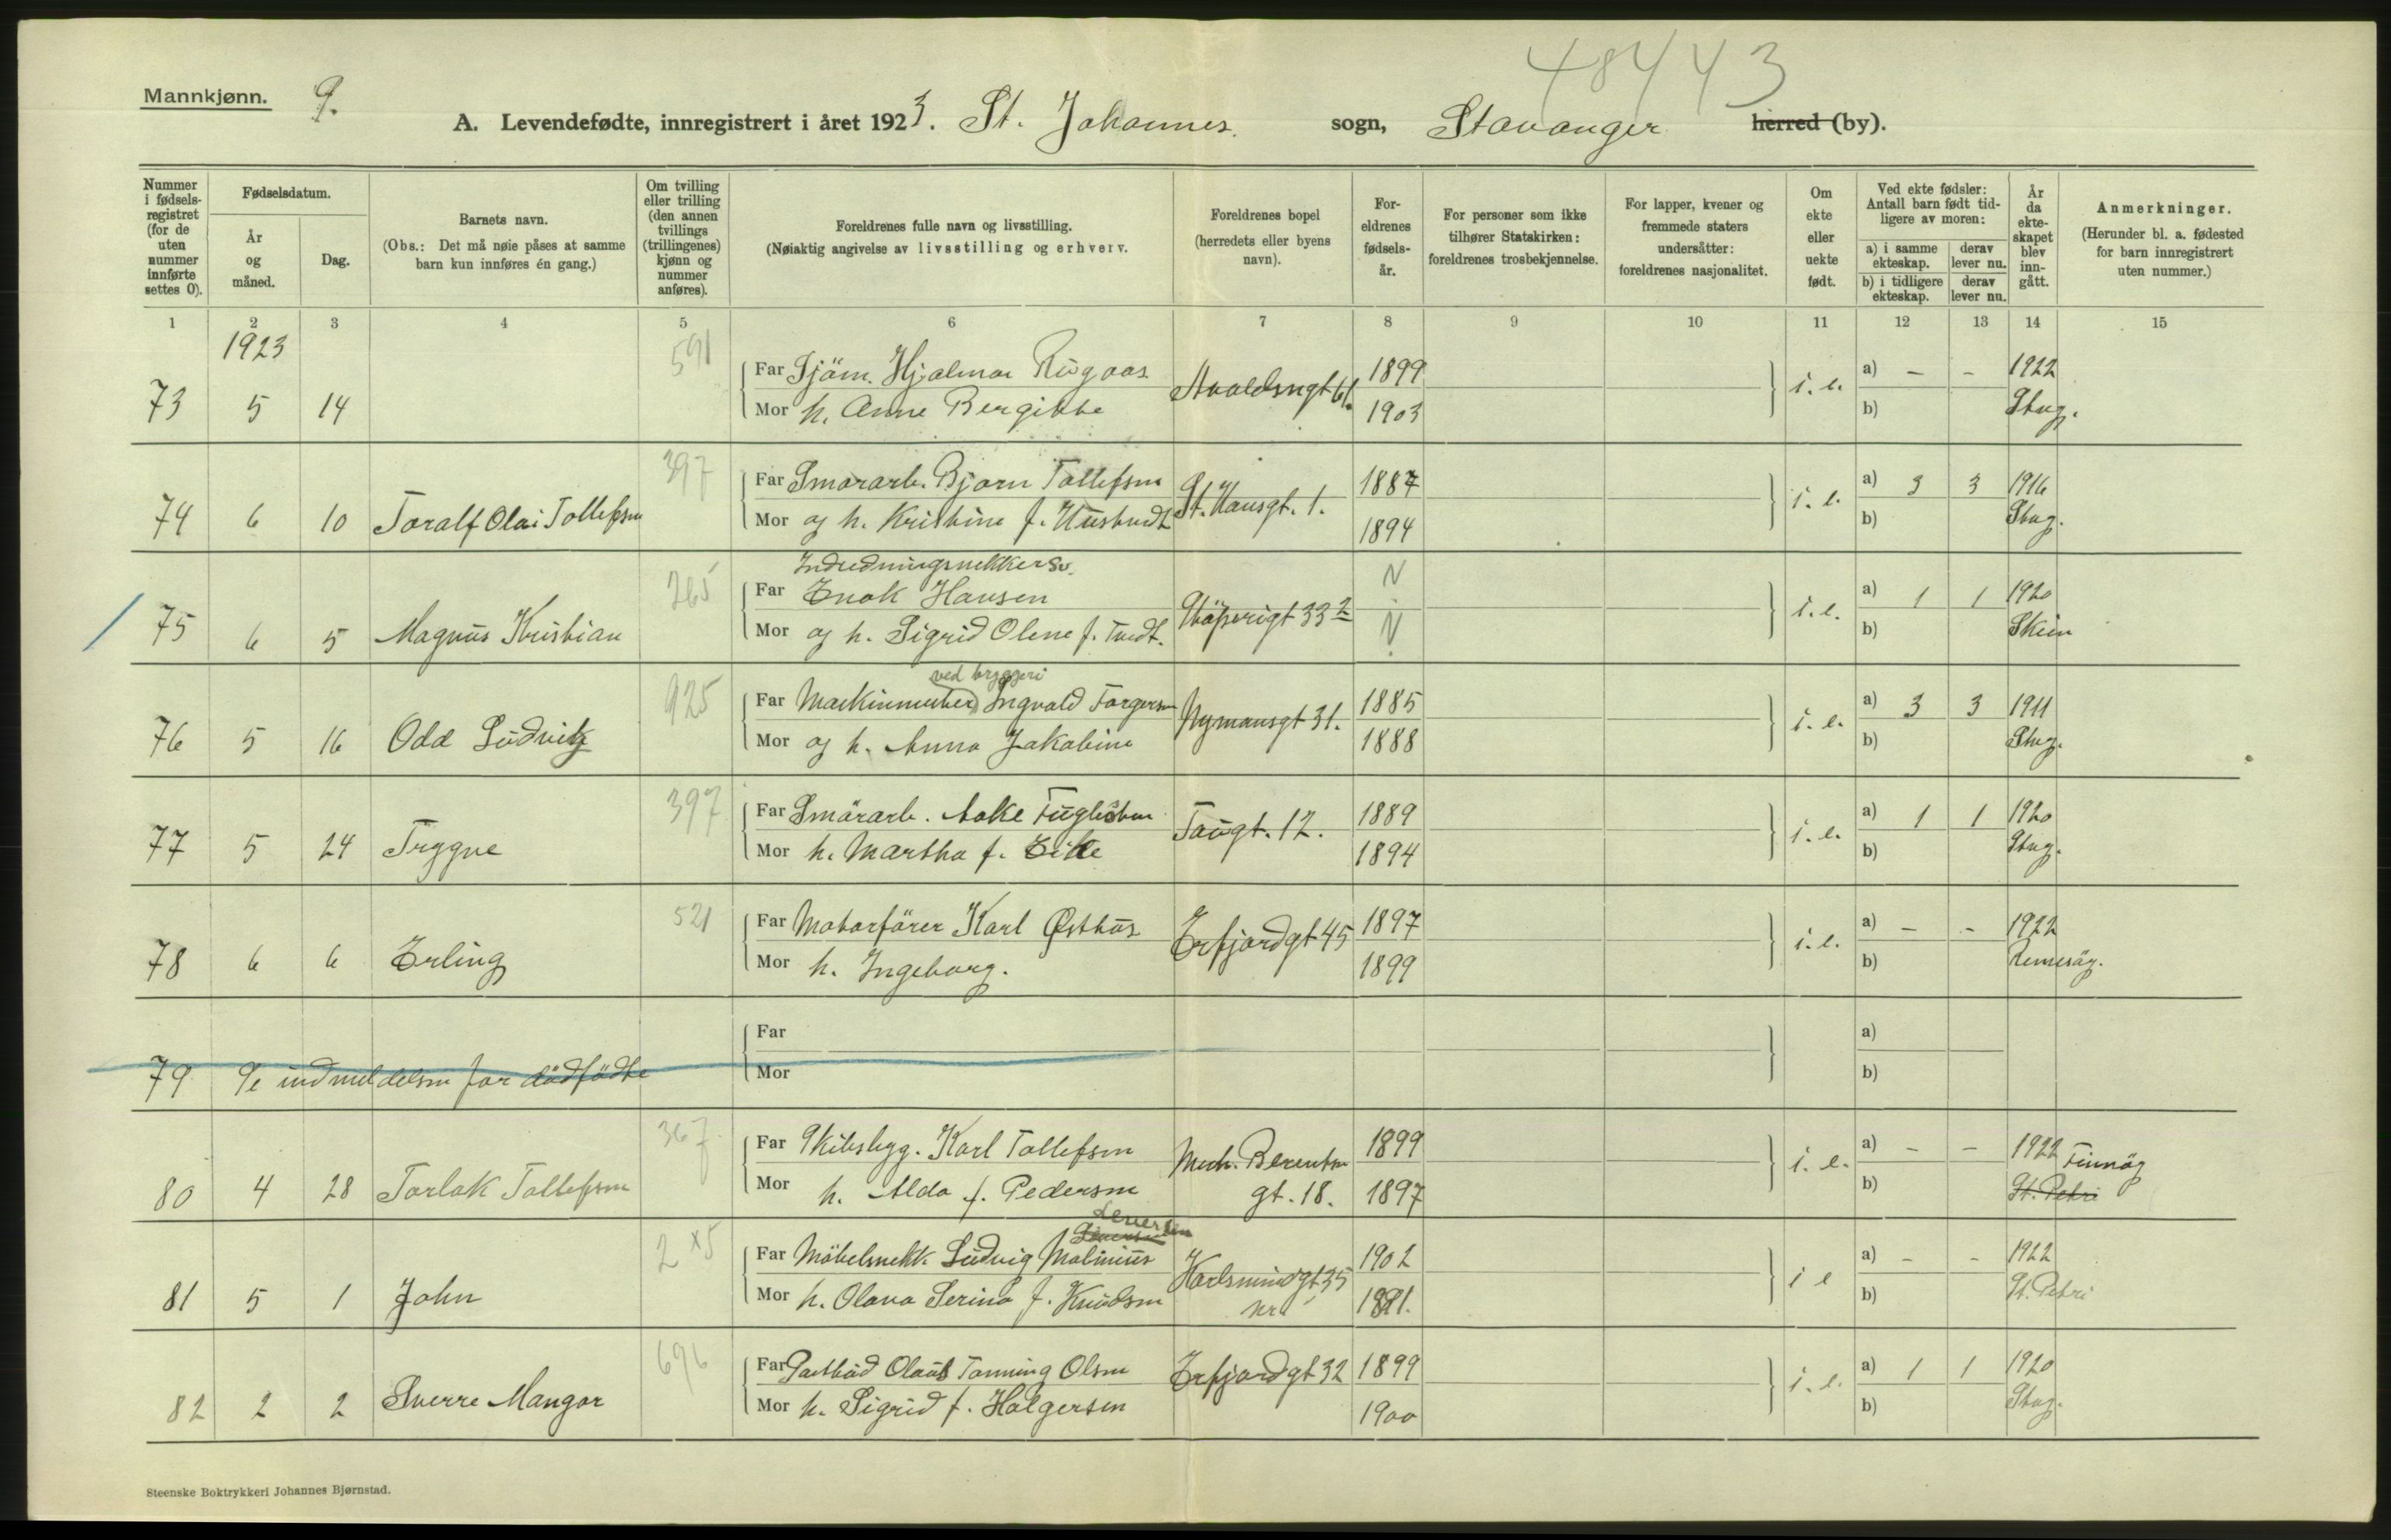 48443
Mannkjønn. 9.
A. Levendefødte, innregistrert i året 1923. St. Johannes. sogn, Stavanger herred (by).
Nummer i fødsels-registret (for de uten nummer innførte settes 0).
Fødselsdatum.
År og måned.
Dag.
Barnets navn.
(Obs.: Det må nøie påses at samme barn kun innføres én gang.)
Om tvilling eller trilling (den annen tvillings (trillingenes) kjønn og nummer anføres).
Foreldrenes fulle navn og livsstilling.
(Nøiaktig angivelse av livsstilling og erhverv.
Foreldrenes bopel (herredets eller byens navn).
For-eldrenes fødsels-år.
For personer som ikke tilhører Statskirken: foreldrenes trosbekjennelse.
For lapper, kvener og fremmede staters undersåtter: foreldrenes nasjonalitet.
Om ekte eller uekte født.
Ved ekte fødsler: Antall barn født tid-ligere av moren:
a) i samme ekteskap. derav lever nu.
b) i tidligere ekteskap. derav lever nu.
År da ekte-skapet blev inn-gått.
Anmerkninger.
(Herunder bl. a. fødested for barn innregistrert uten nummer.)
1 2 3 4 5 6 7 8 9 10 11 12 13 14 15
1923
591
Far Sjöm. Hjalmar Rugaas 1899 a) - - 1922
73 5 14 Mor h. Anne Bergitte 1903 i. e. b) Stvg.
397
Far Smörarb. Bjarn Tollefsen St. Hansgt. 1. 1887 a) 3 3 1916
74 6 10 Toralf Olai Tollefsen Mor og h. Kristine f. 1894 i. e. b) Stvg.
Indredningsnekkersv.
265
Far Enok Hansen 33 2 N a) 1 1 1920
75 6 5 Magnus Kristian Mor og h. Sigrid Olene f. Tvedt. N i. e. b) Skien
ved bryggeri
925
Far Maskinmester Ingvald Torgersen Nymansgt 31. 1885 a) 3 3 1911
76 5 16 Odd Ludvig Mor og h. Anna Jakobine 1888 i. e. b) Stvg.
397
Far Smörarb. Aake Fuglestein Taugt. 12. 1889 a) 1 1 1920
77 5 24 Trygve Mor h. Martha f. Eike 1894 i. e. b) Stvg.
521
Far Motorförer Karl Østhus Erfjordgt 45 1897 a) - - 1922
78 6 6 Erling Mor h. Ingeborg. 1899 i. e. b) Rennesöy.
Far a)
79 Se indmeldelsen for dödfödte Mor b)
367
Far Skibsbyg. Karl Tollefsen Mich. Berentsen 1899 a) - - 1922 Finnöy
80 4 28 Torlak Tollefsen Mor h. Alda f. Pedersen gt. 18. 1897 i. e. b) St. Petri
Seversen
2x5
Far Möbelsnekk. Ludvig Malinius Karlsmindgt 35 1902 a) - - 1922
81 5 1 John Mor h. Olava Serina f. Knudsen i e b) St. Petri
696
Far Postbud Olaus Tonning Olsen Erfjordgt 32 1899 a) 1 1 1920
82 2 2 Sverre Mangor Mor h. Sigrid f. Holgersen 1900 i. e. b) Stvg.
Steenske Boktrykkeri Johannes Bjørnstad.